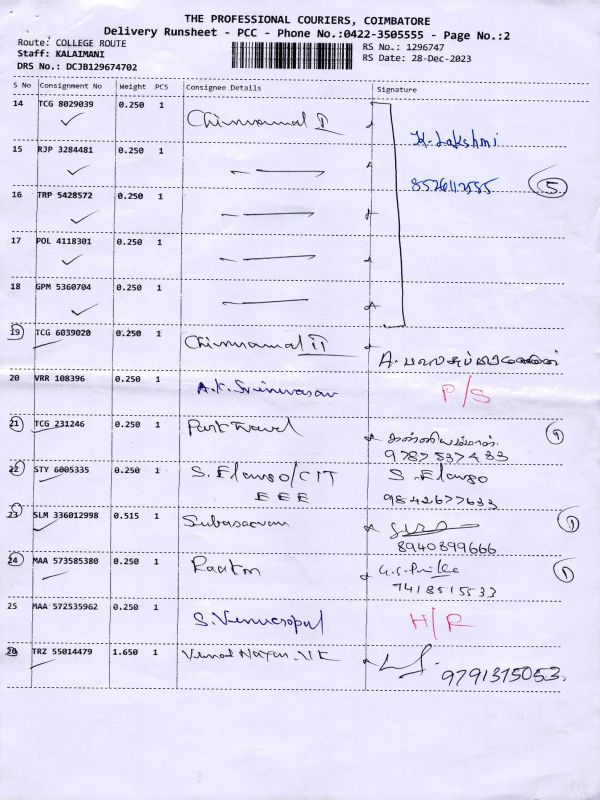 THE PROFESSIONAL COURIERS, COIMBATORE
Delivery Runsheet - PCC - Phone No.:0422-3505555 - Page No.:2
Route: COLLEGE ROUTE
Staff: KALAIMANI
DRS No.: DCJB129674702
RS No.: 1296747
RS Date: 28-Dec-2023
S No Consignment No Weight PCS Consignee Details Signature
14 TCG 8029039 0.250 1 Chinnamal II
K. Lakshmi
15 RJP 3284481 0.250 1
8526112585 5
16 TRP 5428572 0.250 1
17 POL 4118301 0.250 1
18 GPM 5360704 0.250 1
19 TCG 6039020 0.250 1 Chinnamal II A.
20 VRR 108396 0.250 1 A.K. Srinivasan P/S
21 TCG 231246 0.250 1 Park Travel
9787537433
22 STY 6005335 0.250 1 S. Elango/CIT S. Elango
EEE 9842677633
23 SLM 336012998 0.515 1
8940899666
24 MAA 573585380 0.250 1
7418515533
25 MAA 572535962 0.250 1 S. Venugopal H/R
26 TRZ 55014479 1.650 1
9791315053.